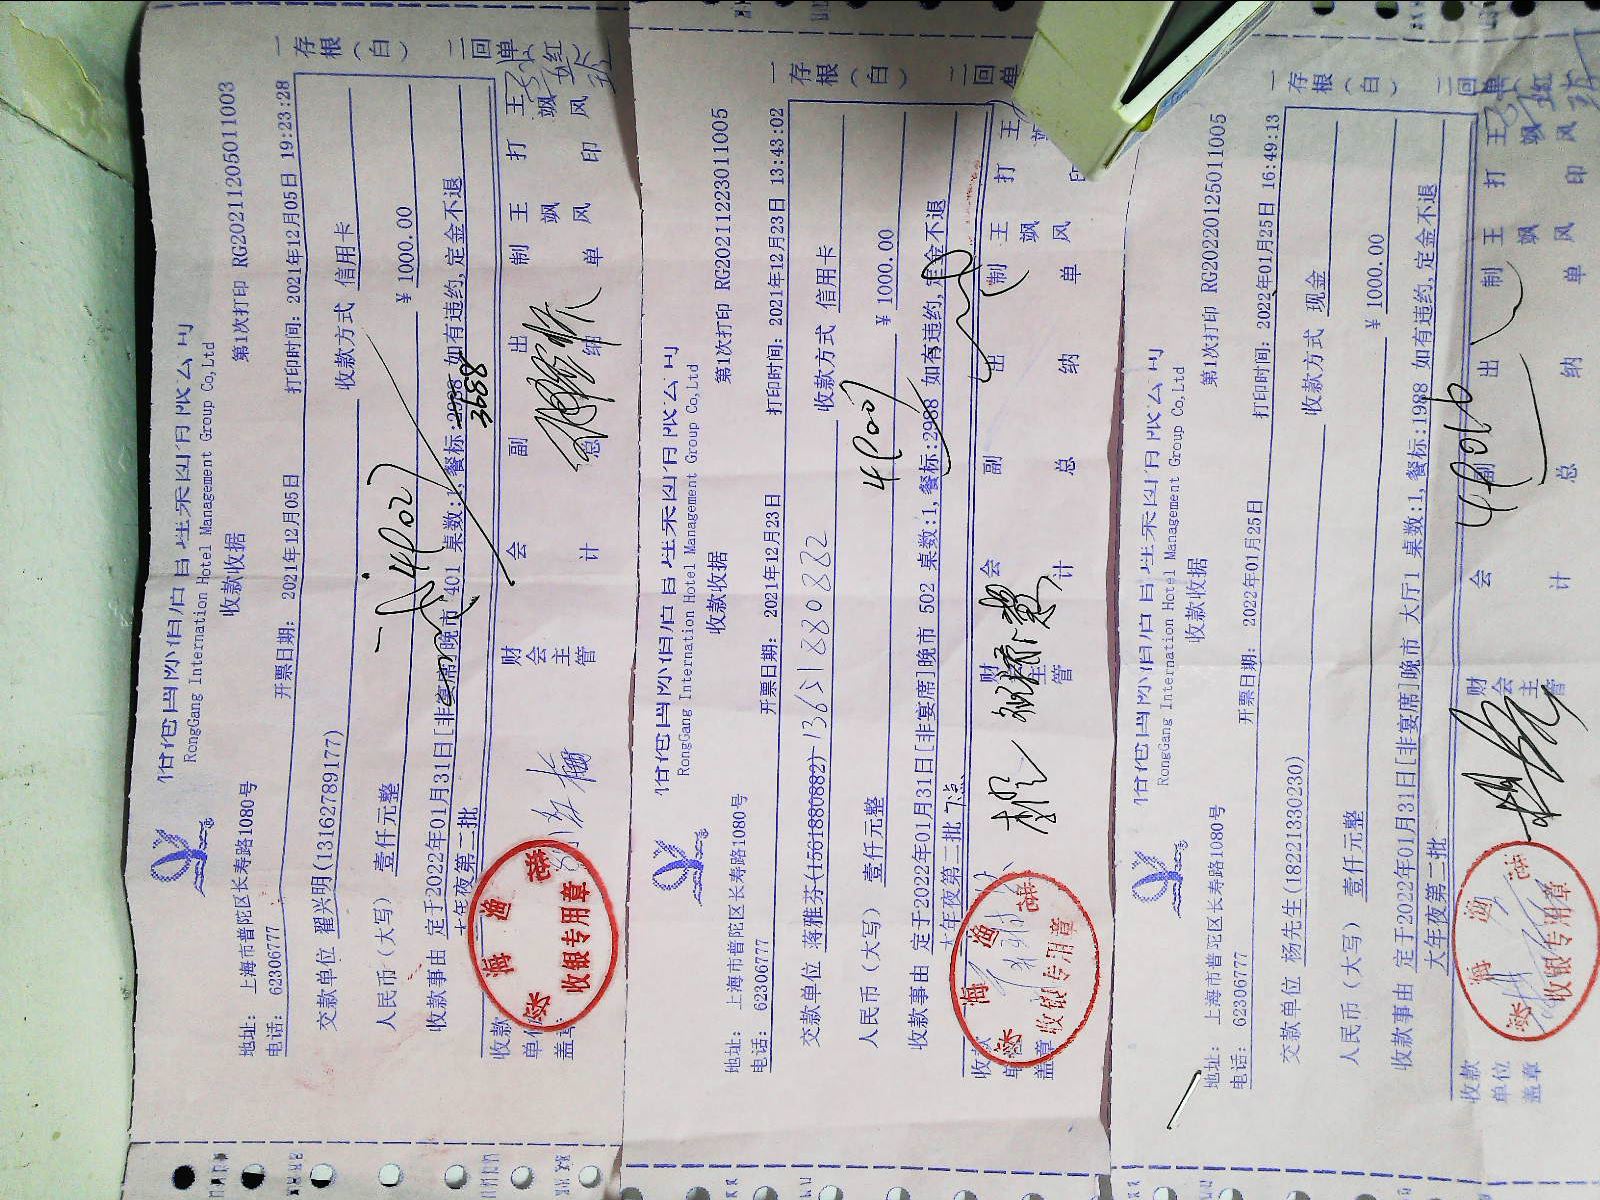 RongGang International Hotel Management Group Co,Ltd
收款收据
第1次打印 RG20211205011003
地址： 上海市普陀区长寿路1080号
电话： 62306777
开票日期： 2021年12月05日
打印时间：2021年12月05日 19:23:28
交款单位 翟兴明(13162789177)
收款方式 信用卡
人民币（大写） 壹仟元整
￥1000.00
收款事由 定于2022年01月31日[非宴席]晚市 401 桌数:1,餐标:2988 如有违约,定金不退
3688
大年夜第二批
收款单位盖章：
财会主管
会计
副总
出纳
制单
王飒风
打印
王飒风
一存根（白）
二回单
收银专用章
RongGang International Hotel Management Group Co,Ltd
收款收据
第1次打印 RG20211223011005
地址： 上海市普陀区长寿路1080号
电话： 62306777
开票日期： 2021年12月23日
打印时间：2021年12月23日 13:43:02
交款单位 蒋雅芬(15618830882) 13651880882
收款方式 信用卡
人民币（大写） 壹仟元整
￥1000.00
收款事由 定于2022年01月31日[非宴席]晚市 502 桌数:1,餐标:2988 如有违约,定金不退
大年夜第二批
收款单位盖章
财会主管
会计
副总
出纳
制单
王飒风
打印
王飒
一存根（白）
二回单
收银专用章
RongGang International Hotel Management Group Co,Ltd
收款收据
第1次打印 RG20220125011005
地址： 上海市普陀区长寿路1080号
电话： 62306777
开票日期： 2022年01月25日
打印时间：2022年01月25日 16:49:13
交款单位 杨先生(18221330230)
收款方式 现金
人民币（大写） 壹仟元整
￥1000.00
收款事由 定于2022年01月31日[非宴席]晚市 大厅1 桌数:1,餐标:1988 如有违约,定金不退
大年夜第二批
收款单位盖章
财会主管
会计
副总
出纳
制单
王飒风
打印
王飒风
一存根（白）
二回单
收银专用章